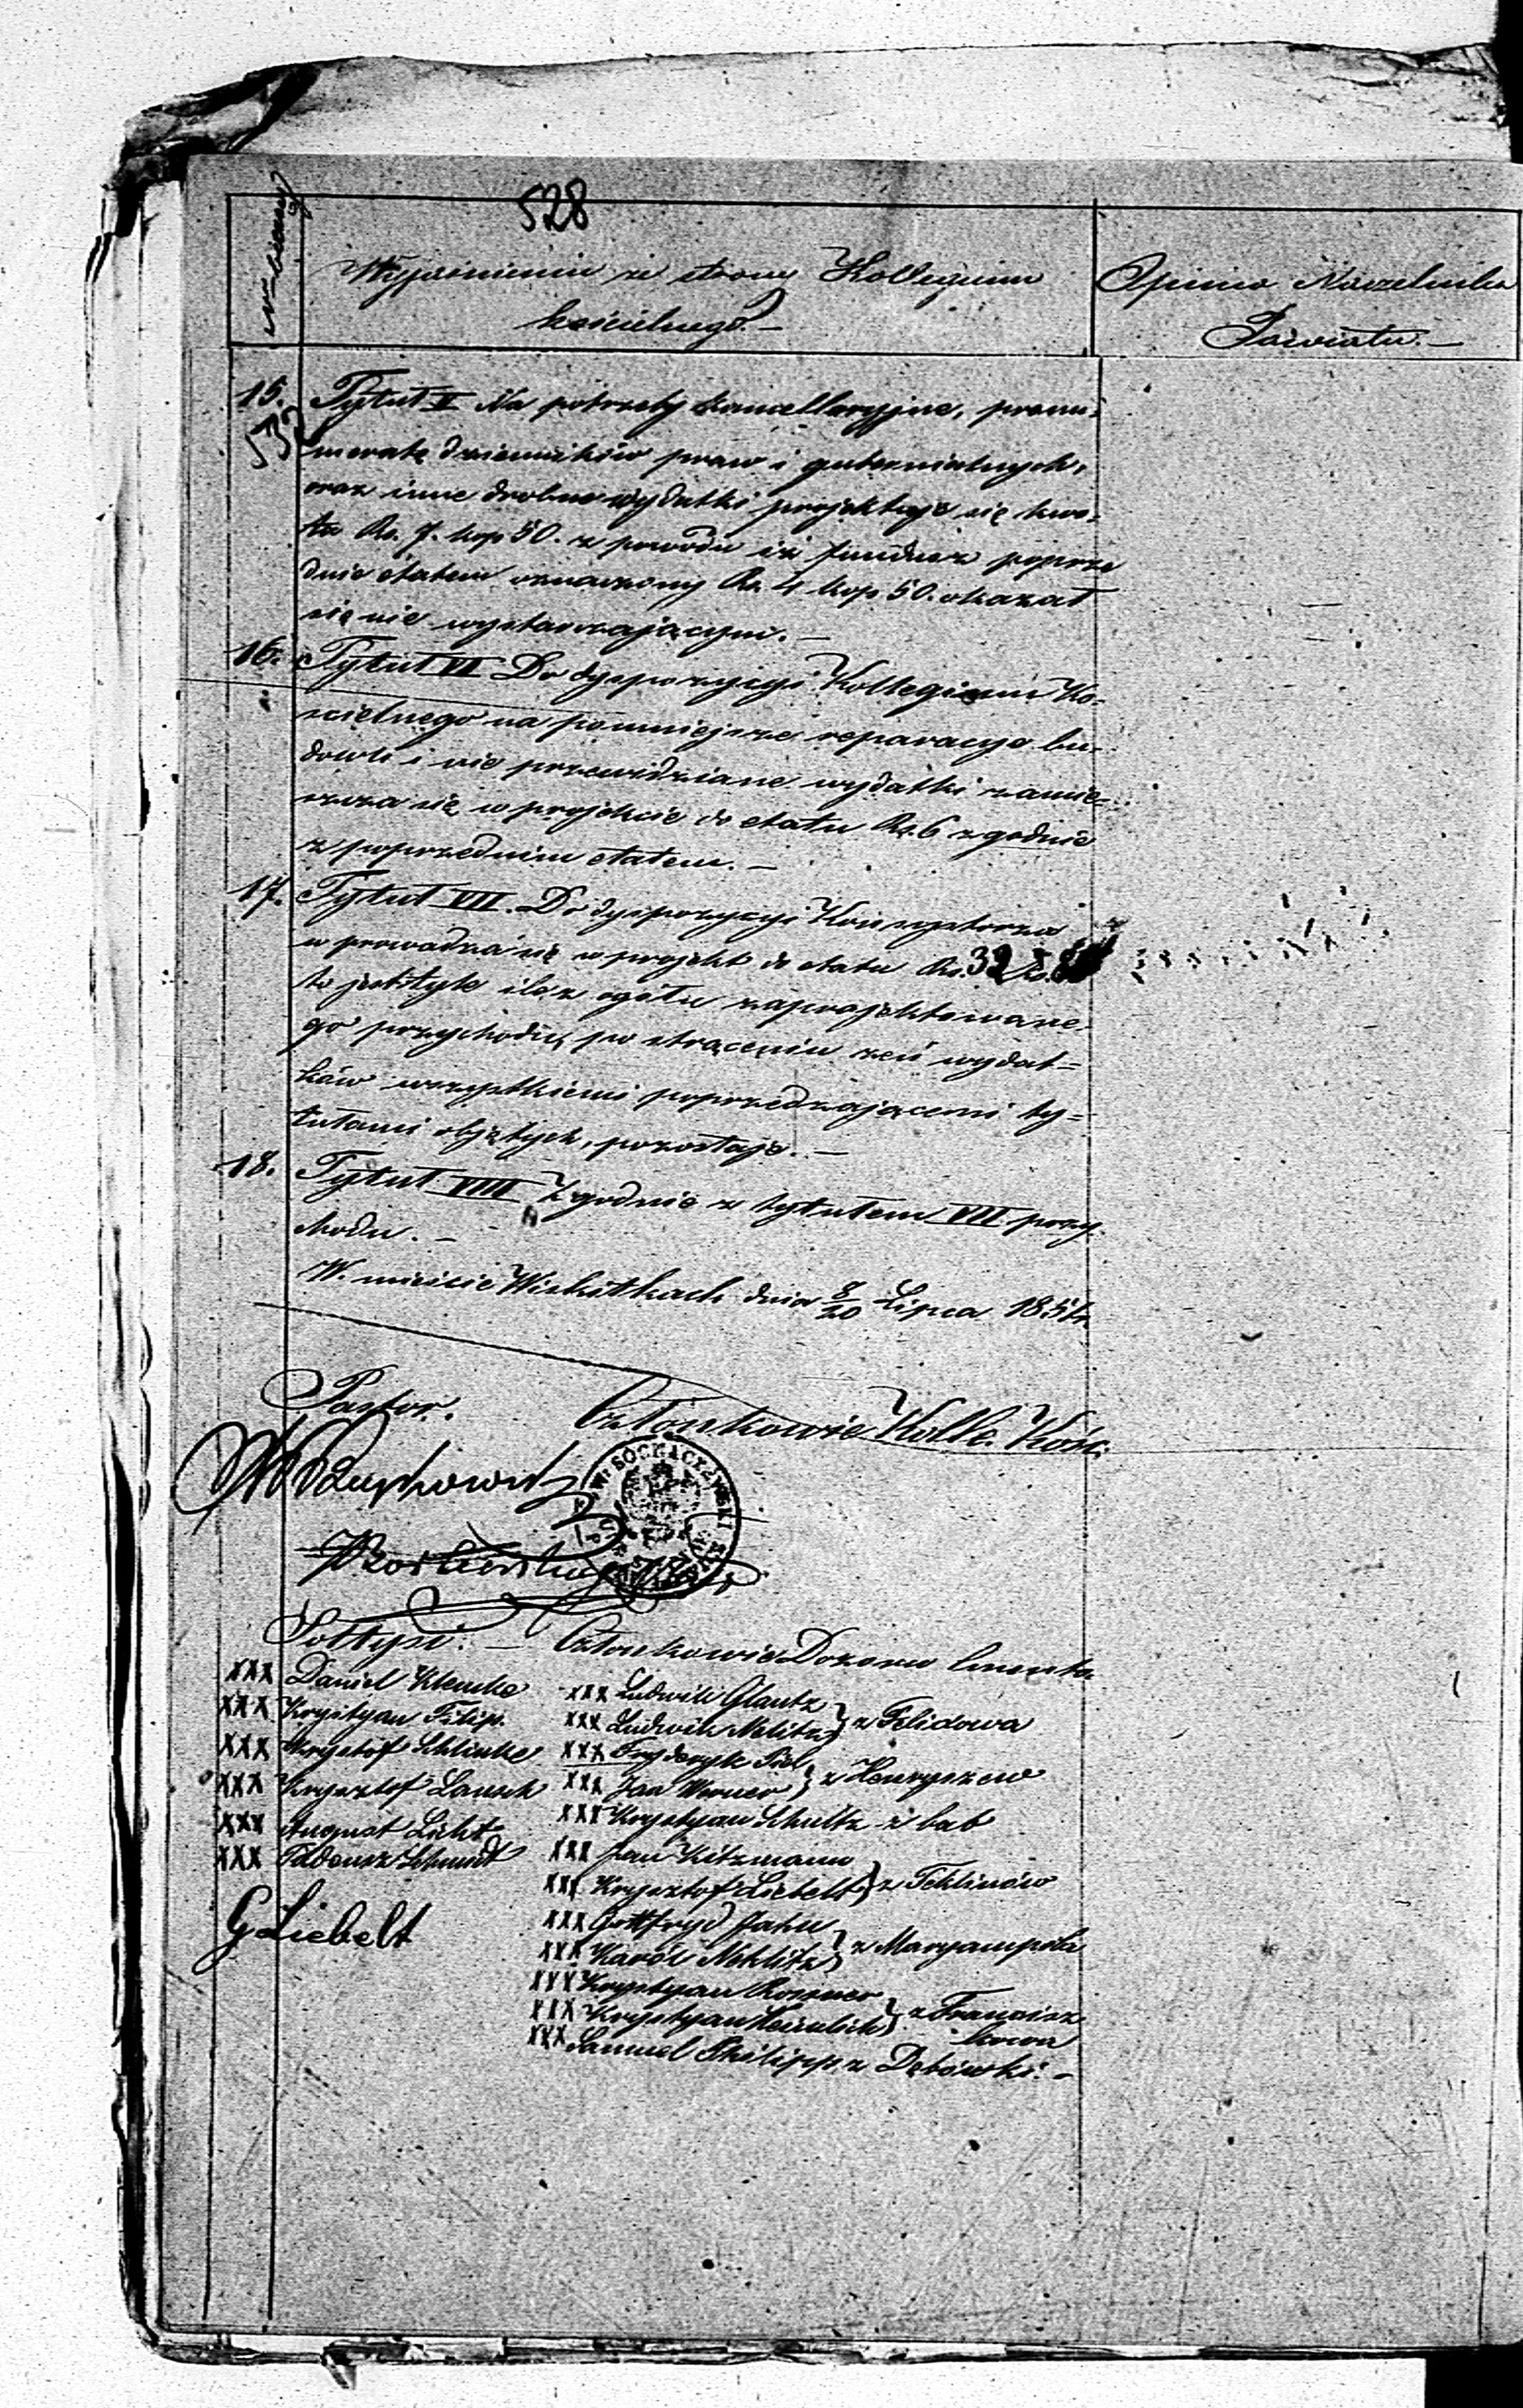 528
Wyjaśnienie ze strony Kollegium
kościelnego.—
Opinia Naczelnika
Powiatu.—
15. Tytuł V Na potrzeby kancellaryjne, prenu-
532
meratę dzienników praw i gubernialnych,
oraz inne drobne wydatki projektuje się kwo-
ta Rs. 7. kop 50. z powodu iż fundusz poprze
dnio etatem oznaczony Rs. 4 kop 50. okazał
się nie wystarczającym.—
16. Tytuł VI Do dyspozycyi Kollegium Ko-
scielnego na pomniejsze reparacye bu-
dowli i nie przewidziane wydatki zamie-
szcza się w projekcie do etatu Rs. 6 zgodnie
z poprzednim etatem.—
17. Tytuł VII. Do dyspozycyi Konsystorza
w prowadza się w projekt do etatu Rs. 32
to jest tyle ile z ogółu zaprojektowane-
go przychodu, po strąceniu zeń wydat-
ków wszystkiemi poprzedzającemi ty-
tułami objętych, pozostaje.—
18. Tytuł VIII Zgodnie z tytułem VII przy-
chodu.—
W mieście Wiskitkach dnia 8/20 Lipca 185
Pastor.
Członkowie Kolle. Kość:
SOCHACZEWSKI
Sołtysi.— Członkowie Dozoru
XXX Daniel Klemke
XXX Krystyan Filip.
XXX Krysztof Schlinke
XXX Krysztof Lausch
XXX August Licht
XXX Tadeusz Schmidt
G Liebelt
XXX Ludwik Glantz
XXX Ludwik Melitz } z Felixowa
XXX Fryderyk Piel
XXX Jan Werner } z Henryszew
XXX Krystyan Schultz z bab
XXX Jan Kitzmann
XXX Krysztof Liebelt } z Teklinów
XXX Gottfryd Jahn
XXX Karól Mehlitz } z Maryampola
XXX Krystyan Rossner
XXX Krystyan } z Francisz
kowa
XXX Samuel Philipp z Dębówki.—